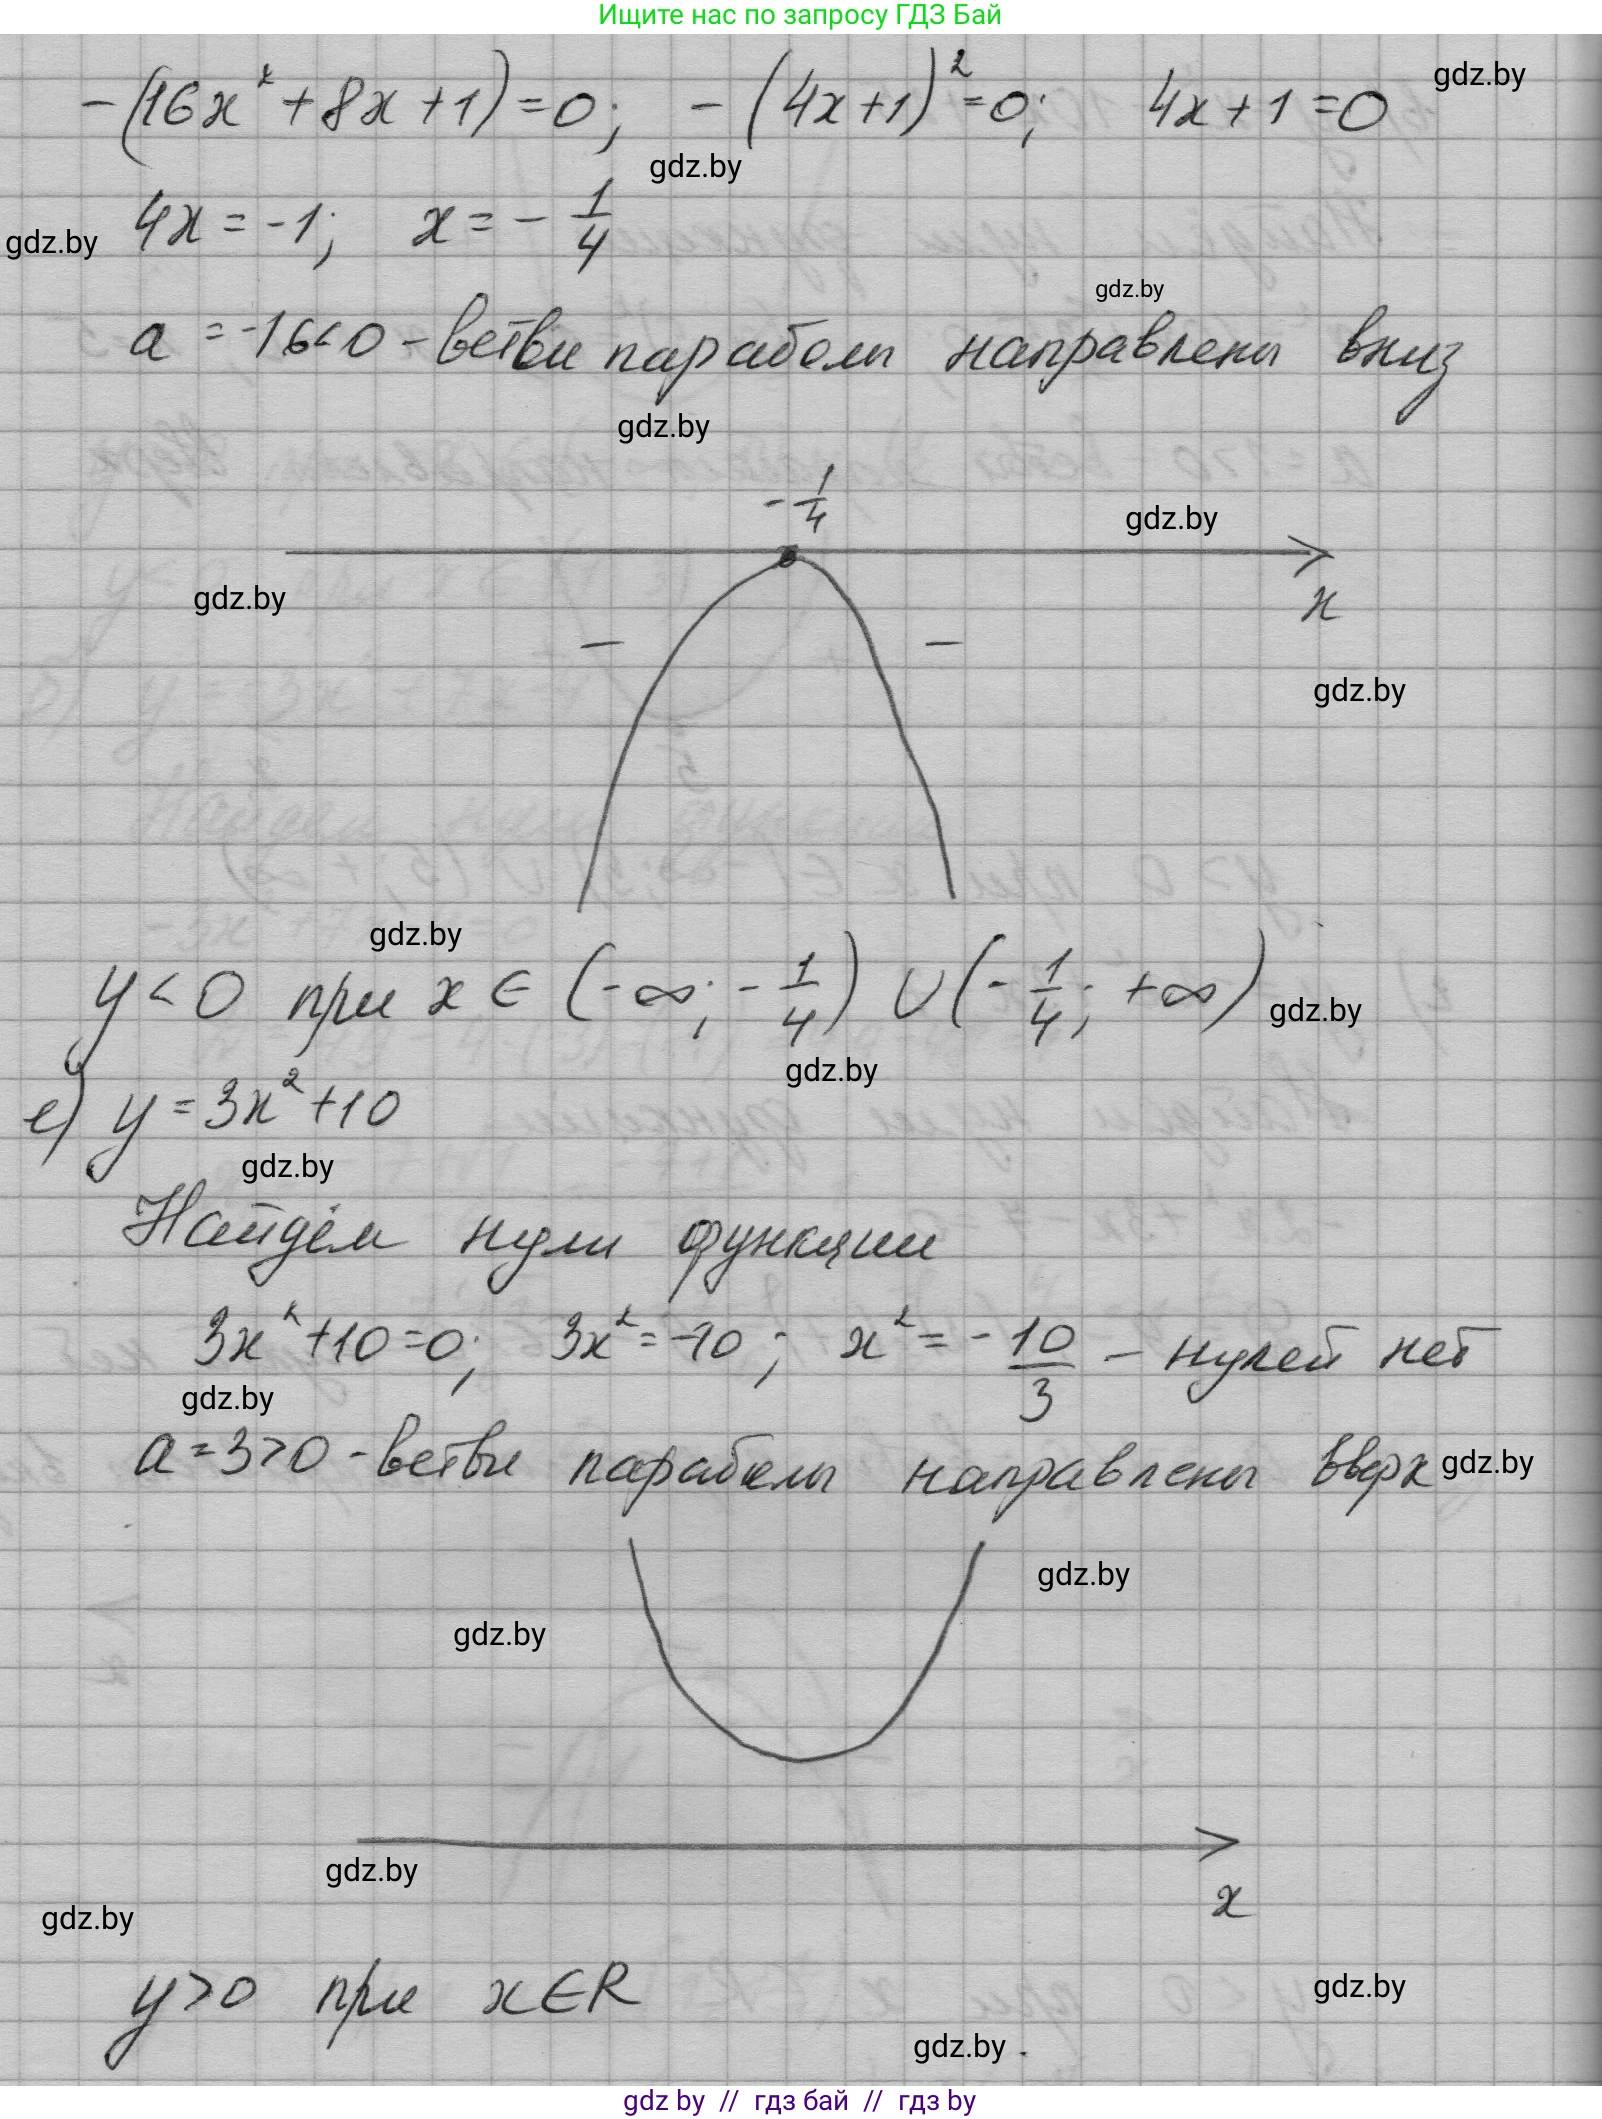 Ищите нас по запросу ГДЗ Бай
-(16x²+8x+1)=0; -(4x+1)²=0; 4x+1=0
gdz.by
gdz.by
4x=-1; x=-1/4
gdz.by
gdz.by
a=-16<0 - ветви параболы направлены вниз
gdz.by
-1/4
gdz.by
gdz.by
x
- -
gdz.by
gdz.by
y<0 при x∈(-∞;-1/4)∪(-1/4;+∞)
gdz.by
gdz.by
е) y=3x²+10
gdz.by
Найдём нули функции
3x²+10=0; 3x²=-10; x²=-10/3 - нулей нет
gdz.by
a=3>0 - ветви параболы направлены вверх
gdz.by
gdz.by
gdz.by
gdz.by
x
gdz.by
y>0 при x∈R
gdz.by
gdz.by
gdz by // гдз бай // гдз by